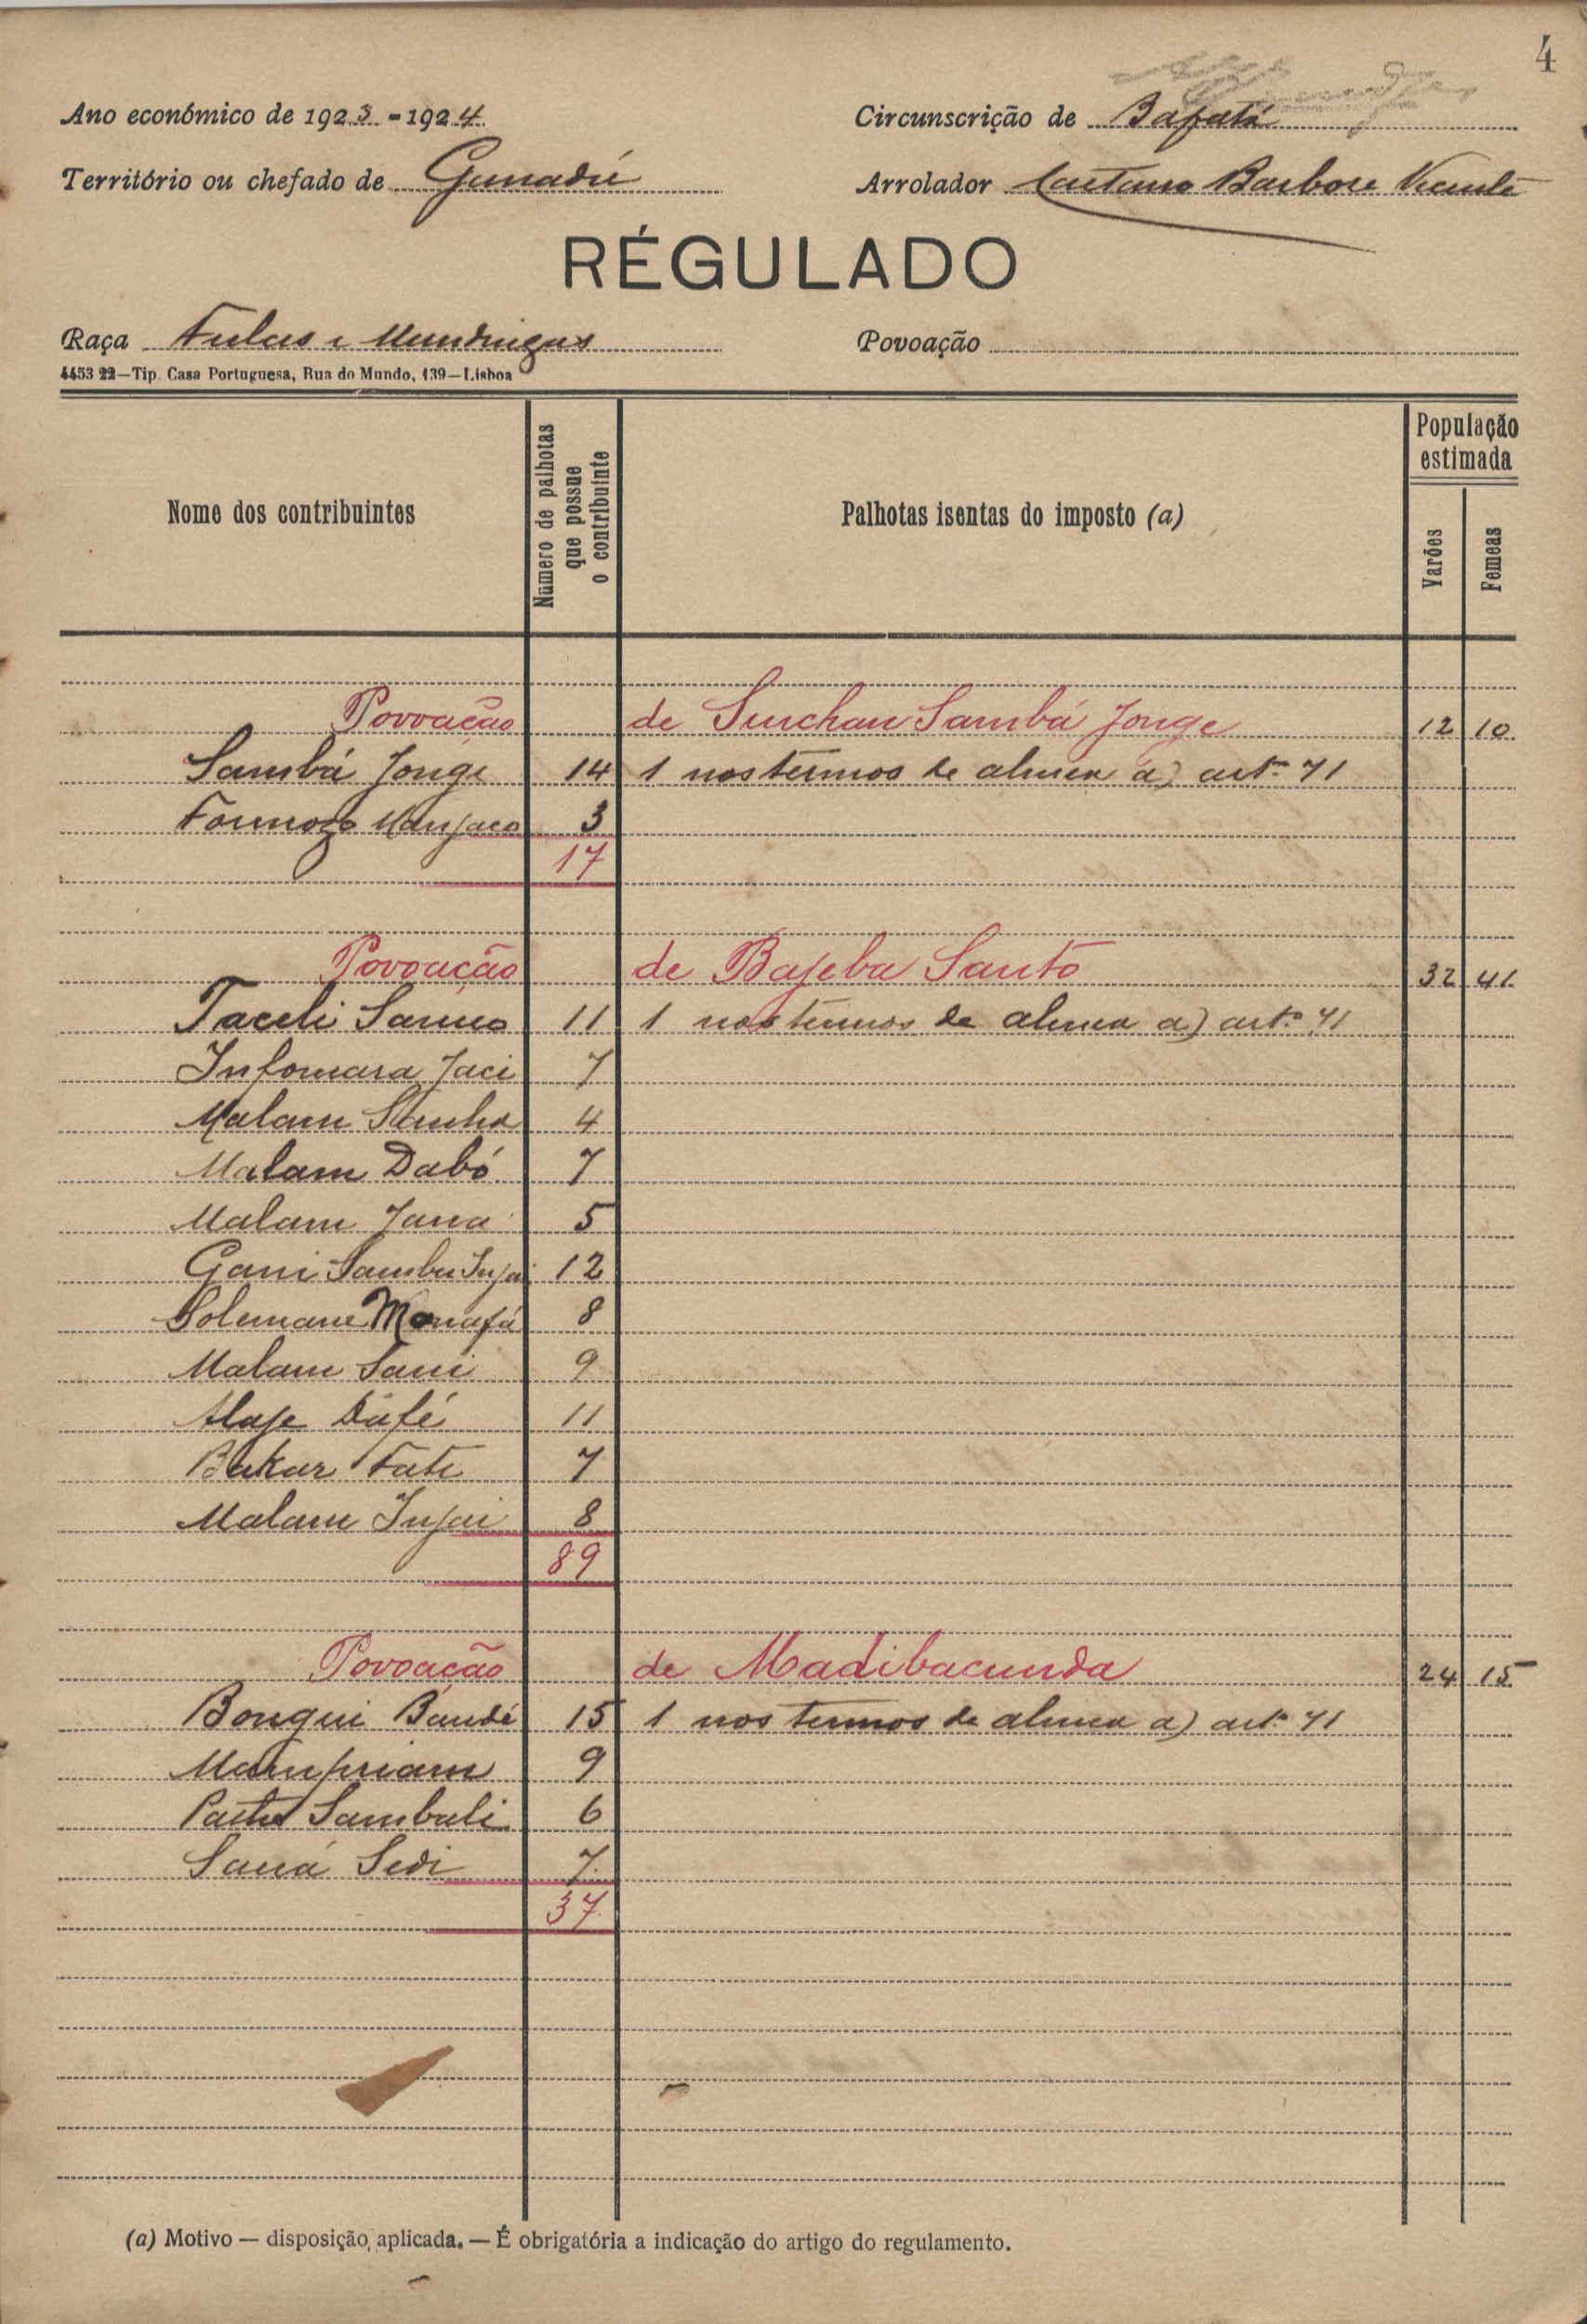 4
Ano económico de 1923-1924 Circunscrição de Bafatá
Território ou chefado de Ganadú Arrolador Caetano Barbosa Vicente
RÉGULADO
Raça Fulas e Mandingas Povoação
4453 22—Tip. Casa Portuguesa, Rua do Mundo, 139—Lisboa
Nome dos contribuintes Número de palhotas que possue o contribuinte Palhotas isentas do imposto (a) População estimada Varões Femeas
Povoação de Sinchau Sambá Jonge 12 10
Sambá Jonge 14 1 nos termos de alinea a) artº 71
Formozo Manjaco 3
17
Povoação de Bajeba Santo 32 41
Taceli Sanno 11 1 nos termos de alinea a) artº 71
Infomara Jaci 7
Malam 4
Malam Dabó 7
Malam Jana 5
Gani Sambu Injai 12
Solemane Manafá 8
Malam Sani 9
Alaje Dafé 11
Bakar Fati 7
Malam Injai 8
89
Povoação de Madibacunda 24 15
Bonqui Baudé 15 1 nos termos de alinea a) artº 71
9
Sambali 6
Saná Sedi 7
37
(a) Motivo — disposição aplicada. — É obrigatória a indicação do artigo do regulamento.